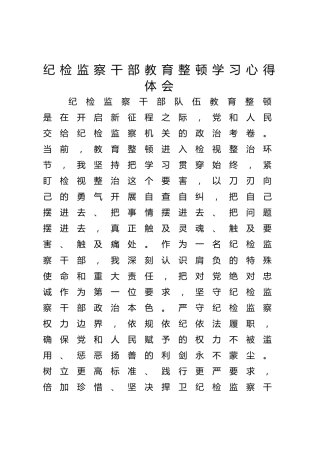 纪检监察干部教育整顿学习心得
体会
纪检监察干部队伍教育整顿
是在开启新征程之际，党和人民
交给纪检监察机关的政治考卷。
当前，教育整顿进入检视整治环
节，我坚持把学习贯穿始终，紧
盯检视整治这个要害，以刀刃向
己的勇气开展自查自纠，把自己
摆进去、把事情摆进去、把问题
摆进去，真正触及灵魂、触及要
害、触及痛处。作为一名纪检监
察干部，我深刻认识肩负的特殊
使命和重大责任，把对党绝对忠
诚作为第一位要求，坚守纪检监
察干部政治本色。严守纪检监察
权力边界，依规依纪依法履职，
确保党和人民赋予的权力不被滥
用、惩恶扬善的利剑永不蒙尘。
树立更高标准、践行更严要求，
倍加珍惜、坚决捍卫纪检监察干